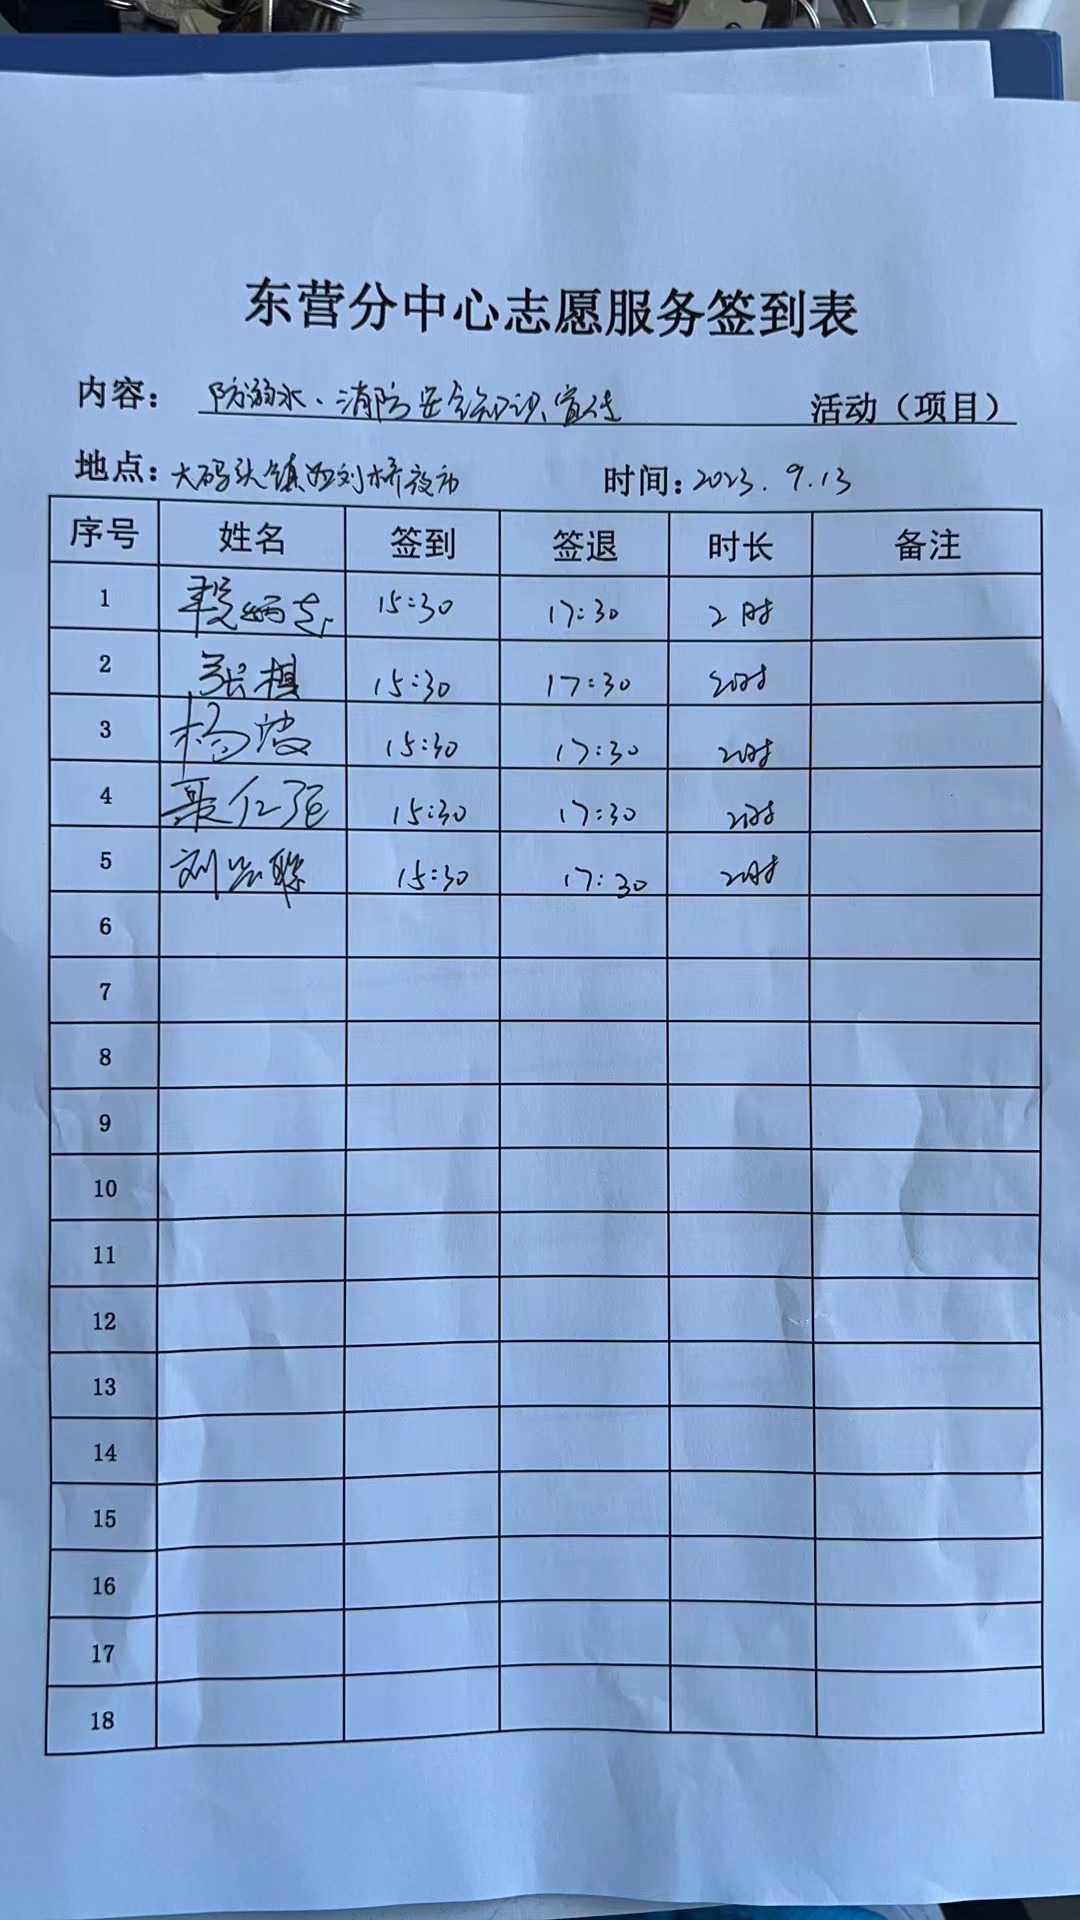 东营分中心志愿服务签到表
内容： 防溺水、消防安全知识宣传 活动（项目）
地点：大码头镇西刘桥夜市 时间：2023.9.13
序号 姓名 签到 签退 时长 备注
1 15:30 17:30 2时
2 张棋 15:30 17:30 2时
3 杨波 15:30 17:30 2时
4 聂仁强 15:30 17:30 2时
5 刘 15:30 17:30 2时
6
7
8
9
10
11
12
13
14
15
16
17
18